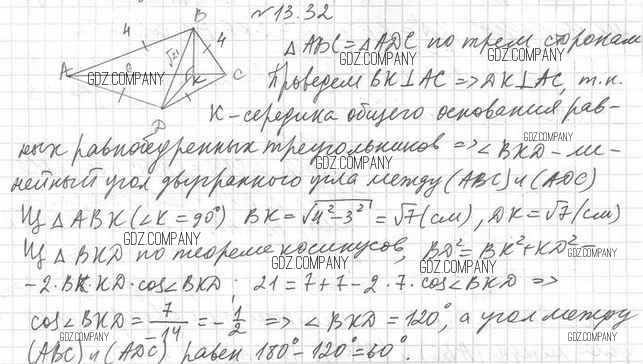 №13.32
B
4
4
√21
A
6
K
C
D
△ABC = △ADC по трем сторонам
Проведем BK⊥AC => DK⊥AC, т.к.
K - середина общего основания рав-
ных равнобедренных треугольников => ∠BKD - ли-
нейный угол двугранного угла между (ABC) и (ADC)
Из △ABK (∠K = 90°) BK = √4²-3² = √7 (см), DK = √7 (см)
Из △BKD по теореме косинусов, BD² = BK² + KD² -
-2·BK·KD·cos∠BKD; 21 = 7+7-2·7·cos∠BKD =>
cos∠BKD = 7/-14 = -1/2 => ∠BKD = 120°, а угол между
(ABC) и (ADC) равен 180°-120°=60°.
GDZ.COMPANY
GDZ.COMPANY
GDZ.COMPANY
GDZ.COMPANY
GDZ.COMPANY
GDZ.COMPANY
GDZ.COMPANY
GDZ.COMPANY
GDZ.COMPANY
GDZ.COMPANY
GDZ.COMPANY
GDZ.COMPANY
GDZ.COMPANY